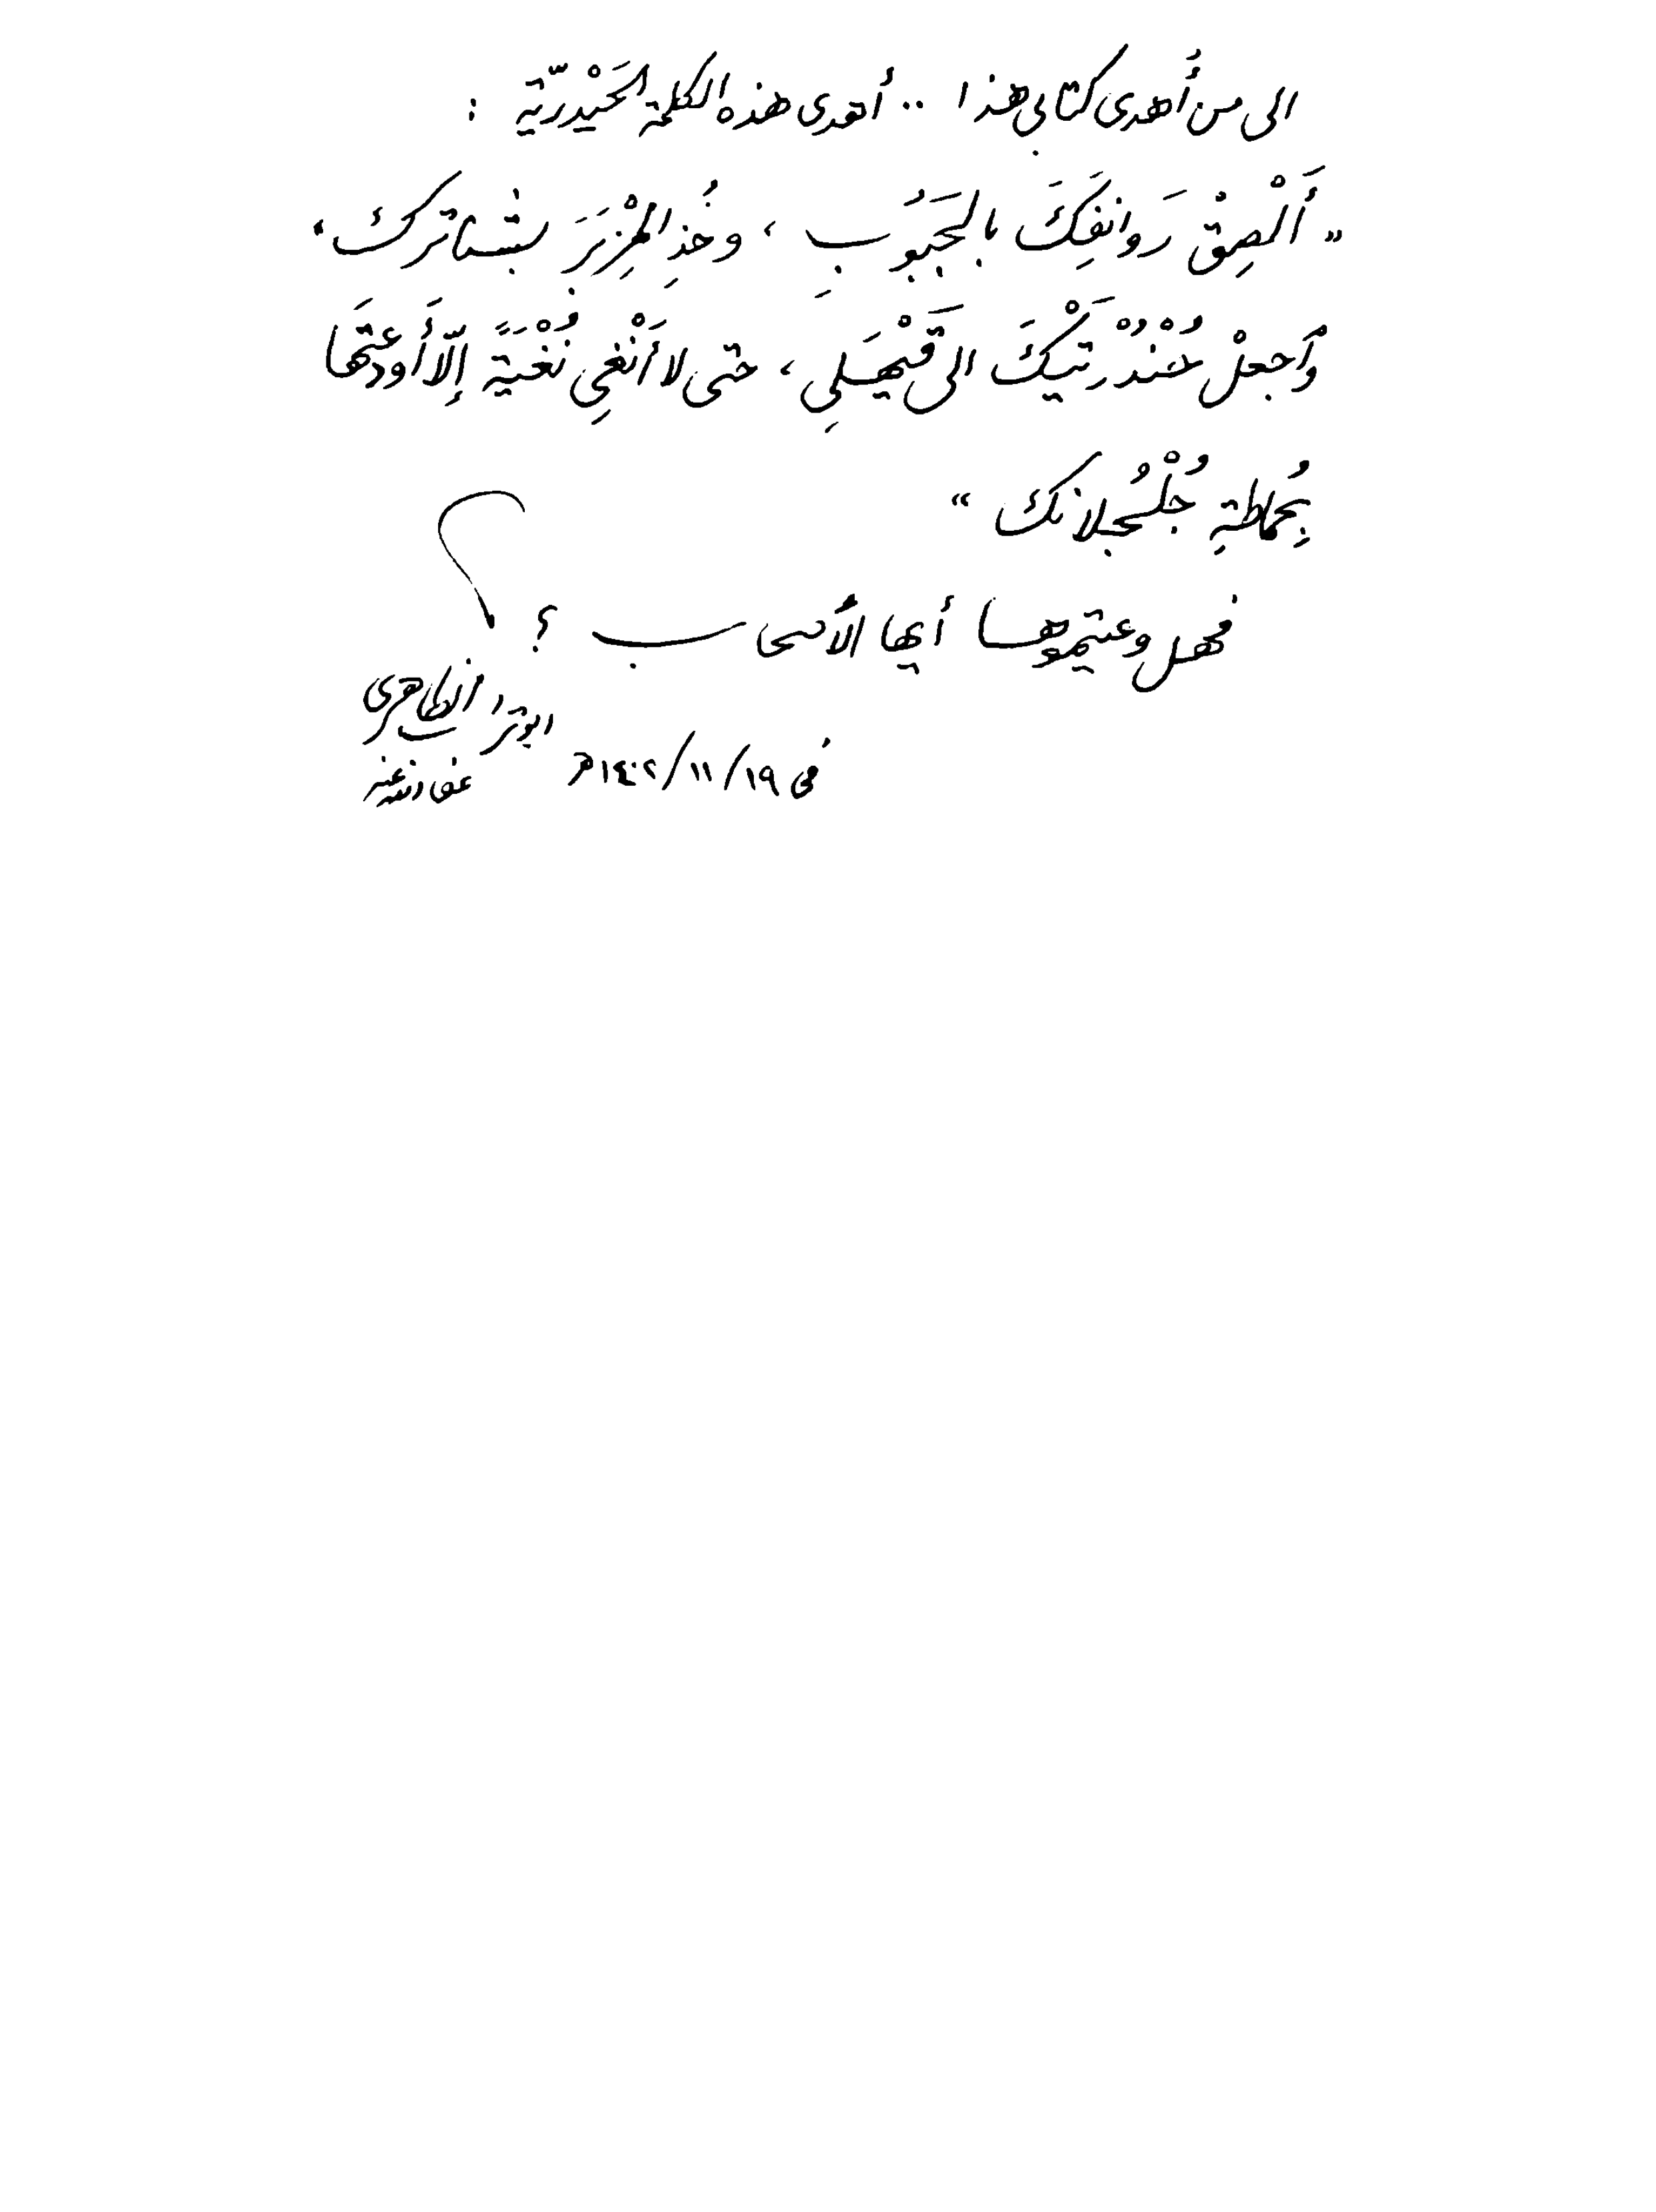 الى من أُهدى كتابي هذا .. أهدى هذه الكلمة الحَيْدريّة :
" أَلْصِقْ رَوانِفَكَ بالجَبُوبِ ، وخُذِ المِزْبَرَ بشناترك ،
وَآجعلْ حُنْدُرْتَيْكَ الى قَيْهَلِي ، حتى لا أَنْغِي نُغْيَةً إِلّا أَودعتَها
بِحُماطةِ جُلْجُلانكَ "
فهل وعيتموها أيها الأصحاب ؟
ابو تراب الظاهرى
في ١٩/ ١١/ ١٤٠٢ هـ
عفا الله عنه